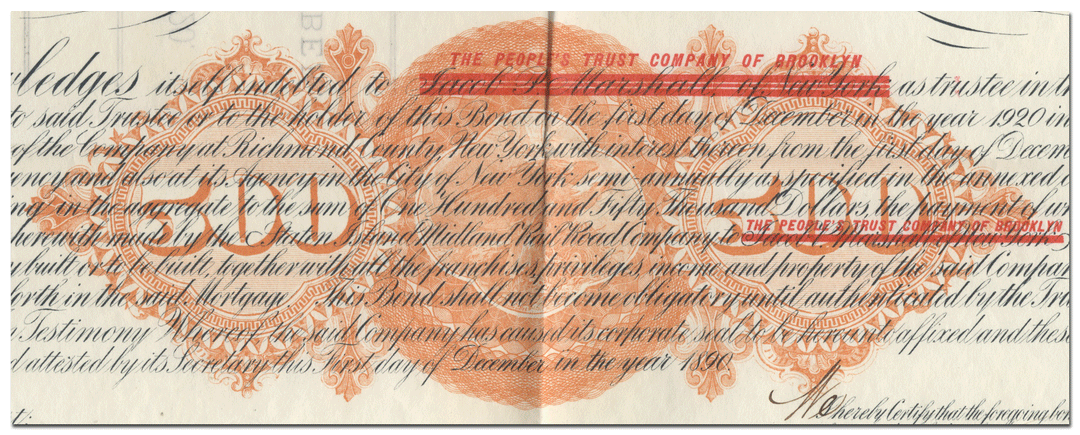 THE PEOPLE'S TRUST COMPANY OF BROOKLYN
ledges itself indebted to Jacob Marshall of New York as trustee in
to said Trustee or to the holder of this Bond on the first day of December in the year 1920 in
of the Company at Richmond County New York with interest thereon from the first day of Decem
and also at its Agency in the City of New York semi annually as specified in the annexed
in the aggregate to the sum of One Hundred and Fifty Dollars the payment of
THE PEOPLE'S TRUST COMPANY OF BROOKLYN
herewith made by the Staten Island Midland Rail Road Company to
500 500
built or to be built, together with all the franchises privileges income and property of the said Compan
forth in the said Mortgage This Bond shall not become obligatory until authenticated by the Tru
Testimony Whereof the said Company has caused its corporate seal to be hereunto affixed and these
attested by its Secretary this First day of December in the year 1890
We hereby Certify that the foregoing bon